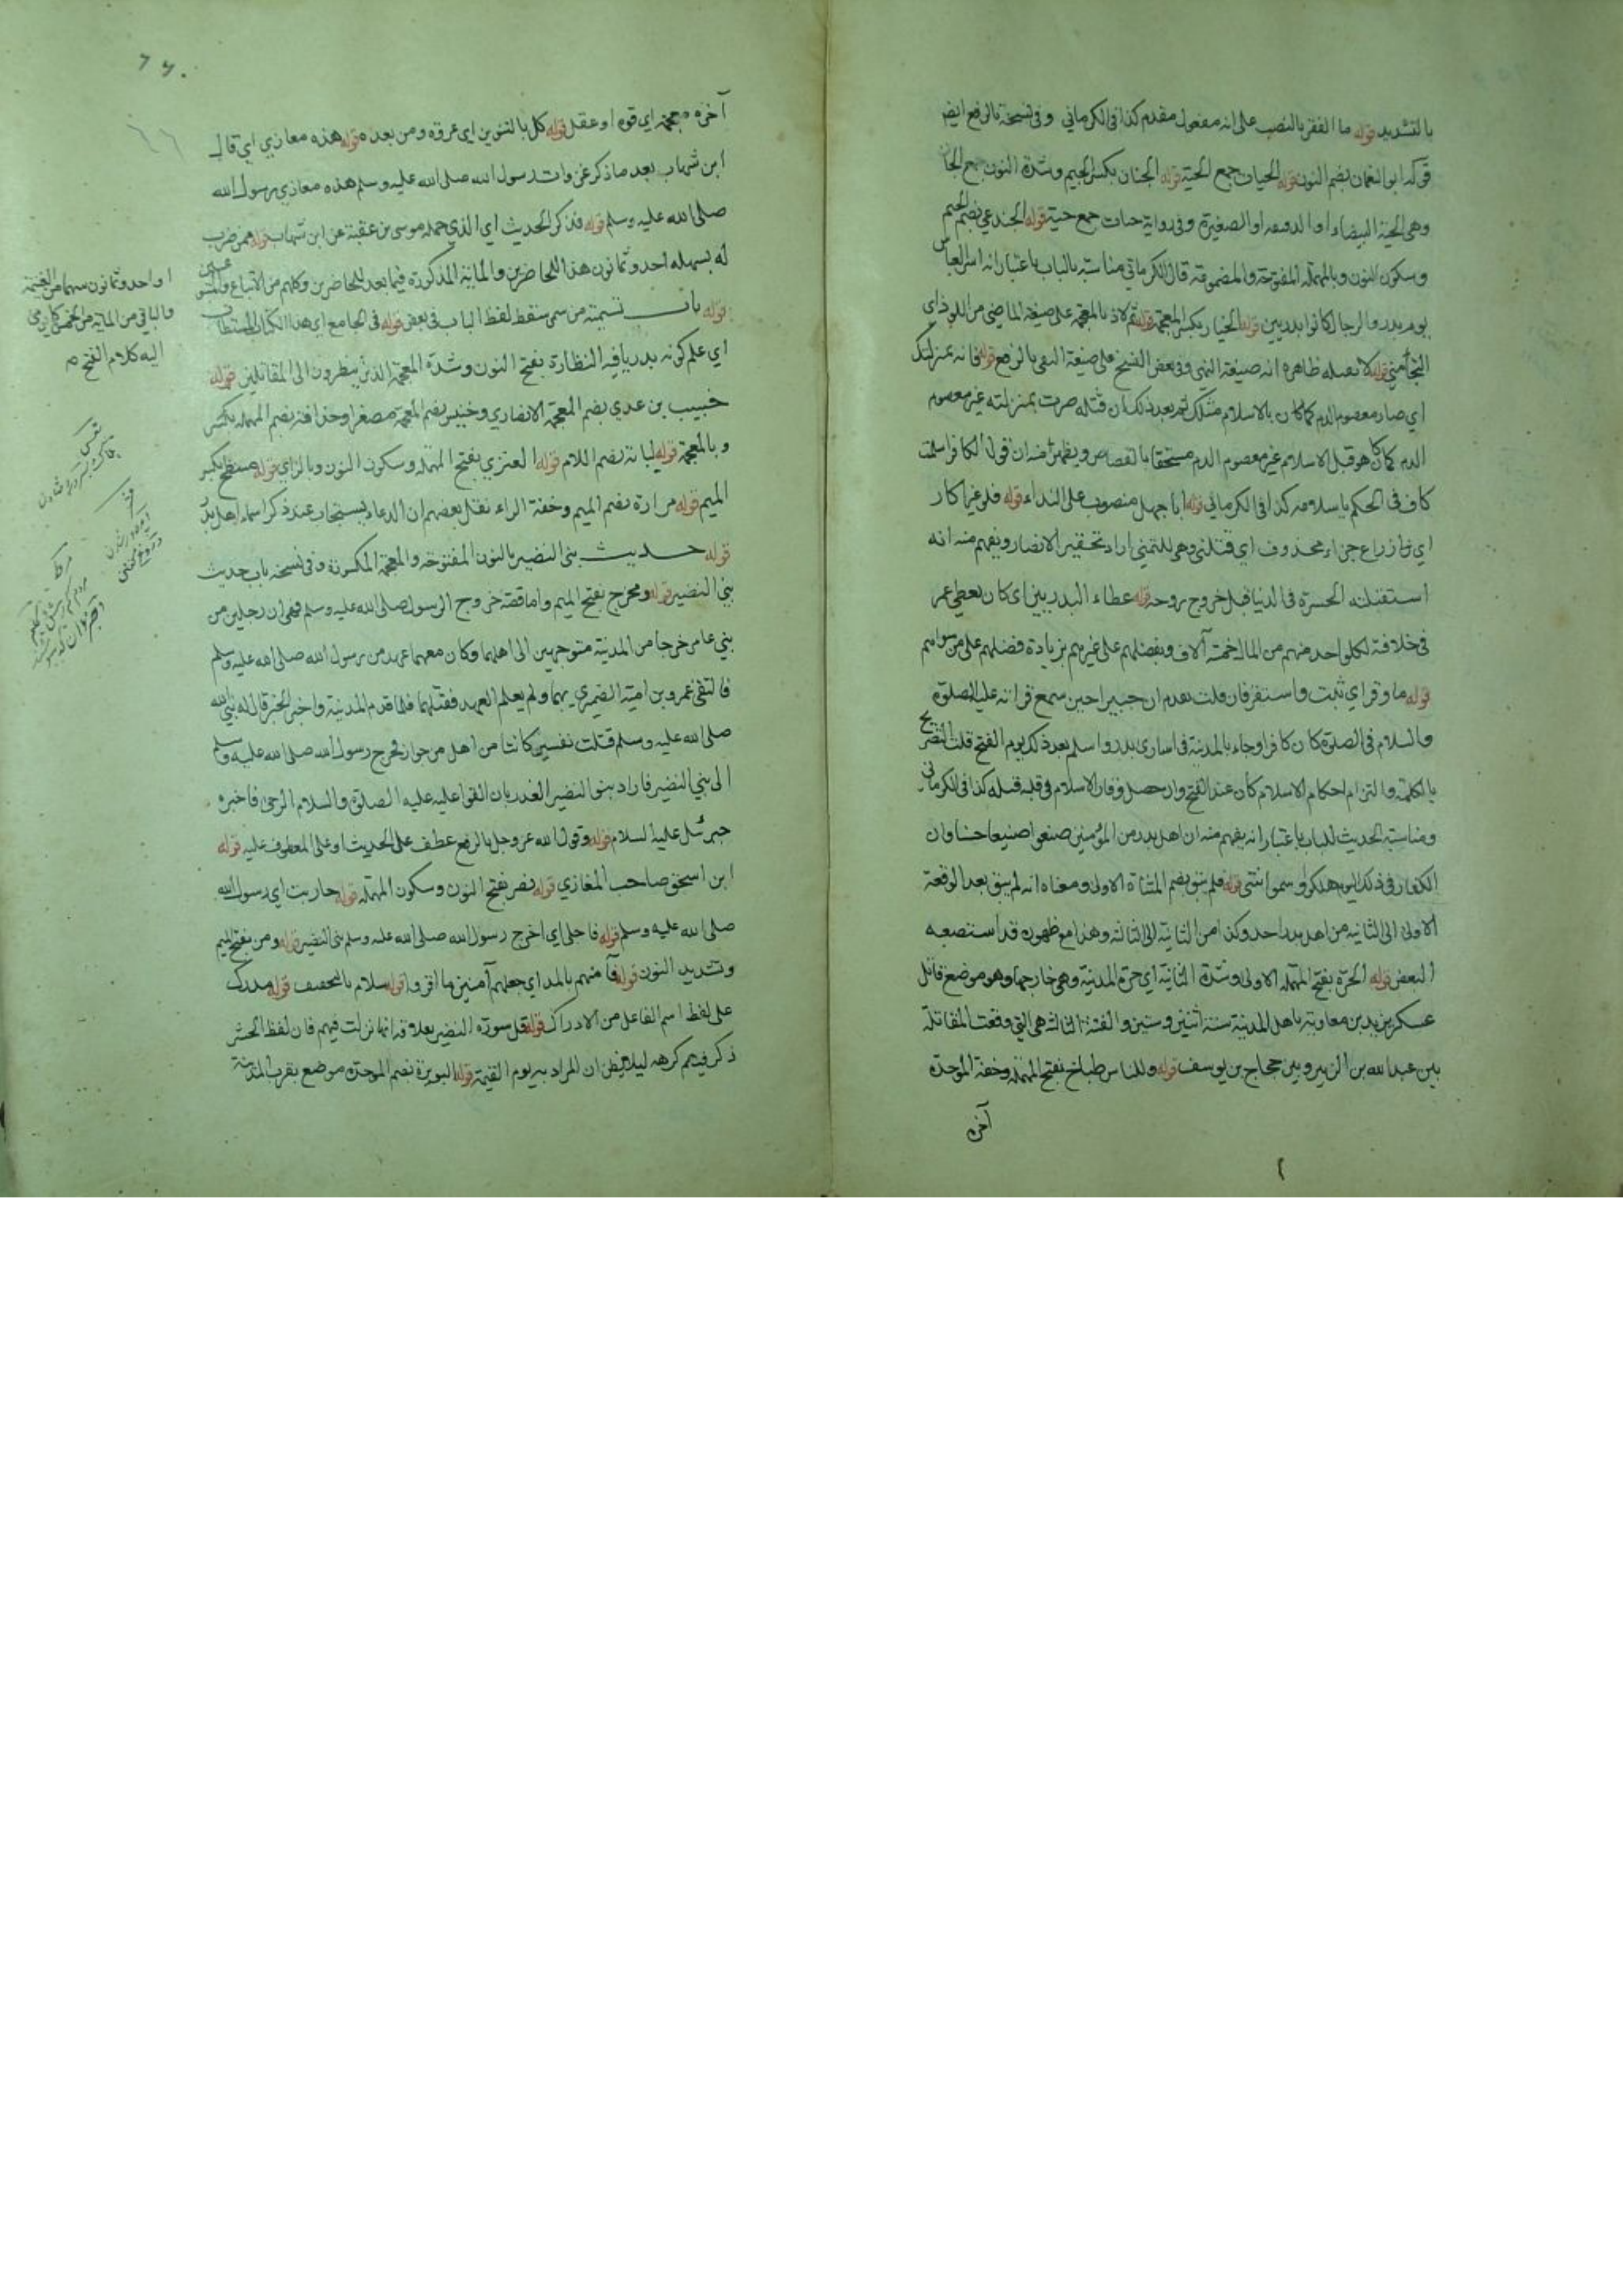 بالتشديد قوله ما الفقر بالنصب على انه مفعول مقدم كذا فى الكرماني وفى نسخة بالرفع ايضا
قوله ابو النعمان بضم النون قوله الحيات جمع الحية قوله الجنان بكسر الجيم وشدة النون جمع الجان
وهى الحية البيضاء او الدقيقة او الصغيرة وفى رواية حيات جمع حية قوله الجندعي بضم الجيم
وسكون النون وبالمهملة المفتوحة والمضمومة قال الكرماني مناسبته بالباب باعتبار انه اسر العباس
يوم بدر والرجال كانوا بدريين قوله الخيار بكسر المعجمة قوله ثم لاذ بالمعجمة على صيغة الماضى من اللوذ اى
التجأ مني قوله لا تقتله ظاهره انه صيغة النهى وفى بعض النسخ على صيغة النفى بالرفع قوله فانه بمنزلتك
اي صار معصوم الدم كما كان بالاسلام مثلك ثم بعد ذلك ان قتلته صرت بمنزلته غير معصوم
الدم كما كان هو قبل الاسلام غير معصوم الدم مستحقا بالقصاص ويفهم منه ان قول الكافر اسلمت
كاف فى الحكم باسلامه كذا فى الكرماني قوله ابا جهل منصوب على النداء قوله فلو غير اكار
اي زراع جزاءه محذوف اي قتلني وهى للتمني اراد تحقير الانصار ويفهم منه انه
استقبلته الحسرة فى الدنيا قبل خروج روحه قوله عطاء البدريين اى كان يعطي عمر
فى خلافته لكل واحد منهم من المال خمسة آلاف ويفضلهم على غيرهم بزيادة فضلهم على من سواهم
قوله ما وقر اي ثبت واستقر فان قلت تقدم ان جبيرا حين سمع قرانه عليه الصلوة
والسلام فى الصلوة كان كافرا وجاء بالمدينة فى اسارى بدر واسلم بعد ذلك يوم الفتح قلت التصريح
بالكلمة والتزام احكام الاسلام كان عند الفتح وان حصل وقار الاسلام فى قلبه قبله كذا فى الكرمانى
ومناسبة الحديث للباب باعتبار انه يفهم منه ان اهل بدر من المؤمنين صنعوا صنيعا حسنا وان
الكفار فى ذلك اليوم هلكوا وسموا نتنى قوله فلم تبق بضم المثناة الاولى ومعناه انه لم يبق بعد الوقعة
الاولى الى الثانية من اهل بدر احد وكذا من الثانية الى الثالثة وهذا مع ظهوره قد استصعبه
البعض قوله الحرة بفتح المهملة الاولى وشدة الثانية اي حرة المدينة وهى خارجها وهو موضع قاتل
عسكر يزيد بن معاوية باهل المدينة سنة اثنين وستين والفتنة الثالثة هى التي وقعت المقاتلة
بين عبد الله بن الزبير وبين حجاج بن يوسف قوله وللناس طباخ بفتح المهملة وخفة الموحدة
آخره
آخره معجمة اي قوة او عقل قوله كل بالتنوين اي عروة ومن بعده قوله هذه مغازي اي قال
ابن شهاب بعد ما ذكر غزوات رسول الله صلى الله عليه وسلم هذه مغازي رسول الله
صلى الله عليه وسلم قوله فذكر الحديث اي الذي حمله موسى بن عقبة عن ابن شهاب قوله ممن ضرب
له بسهمه احد وثمانون هذا للحاضرين والمائة المذكورة فيما بعد للحاضرين وكلهم من الاتباع
قوله باب تسمية من سمى سقط لفظ الباب فى بعض قوله فى الجامع اي هذا الكتاب المستطاب
اي علم كونه بدريا فيه النظارة بفتح النون وشدة المعجمة الذين ينظرون الى المقاتلين قوله
خبيب بن عدي بضم المعجمة الانصاري وخنيس بضم المعجمة مصغرا وحذافة بضم المهملة بكسر
وبالمعجمة قوله لبابة بضم اللام قوله العنزي بفتح المهملة وسكون النون وبالزاي قوله مسطح بكسر
الميم قوله مرارة بضم الميم وخفة الراء نقل بعضهم ان الدعاء يستجاب عند ذكر اسماء اهل بدر
قوله حديث بنى النضير بالنون المفتوحة والمعجمة المكسورة وفى نسخة باب حديث
بني النضير قوله ومخرج بفتح الميم واما قصة خروج الرسول صلى الله عليه وسلم فهى ان رجلين من
بني عامر خرجا من المدينة متوجهين الى اهلهما وكان معهما عهد من رسول الله صلى الله عليه وسلم
فالتقى عمرو بن امية الضميري بهما ولم يعلم العهد فقتلهما فلما قدم المدينة واخبر الخبر قال له نبي الله
صلى الله عليه وسلم قتلت نفسين كانتا من اهل من جوار فخرج رسول الله صلى الله عليه وسلم
الى بني النضير فاراد بنو النضير الغدر بان القوا عليه عليه الصلوة والسلام الرحى فاخبره
جبرئيل عليه السلام قوله وقول الله عز وجل بالرفع عطف على الحديث او على المعطوف عليه قوله
ابن اسحق صاحب المغازي قوله نضر بفتح النون وسكون المهملة قوله حاربت اي رسول الله
صلى الله عليه وسلم قوله فاجلى اي اخرج رسول الله صلى الله عليه وسلم بنى النضير قوله ومن بفتح الميم
وتشديد النون قوله فآمنهم بالمد اي جعلهم آمنين ما اقروا قوله سلام بالتخفيف قوله مدرك
على لفظ اسم الفاعل من الادراك قوله قل سورة النضير بعلاقة انها نزلت فيهم فان لفظ الحشر
ذكر فيهم كرهه ليلا يظن ان المراد به يوم القيمة قوله البويرة بضم الموحدة موضع بقرب المدينة
او احد وثمانون سهما من الغنيمة
والباقى من المائة من الخمس كما يرمى
اليه كلام الفتح م